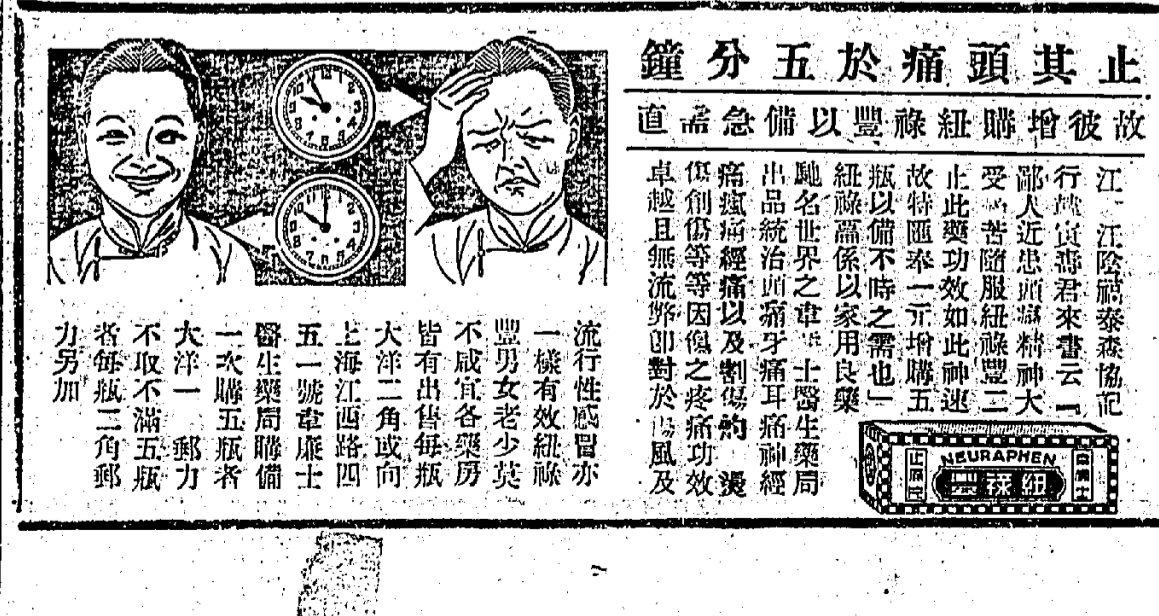 止其頭痛於五分鐘
故彼增購紐祿豐以備急需 直
江 江陰 泰森協記
行 君來書云『
鄙人近患頭 精神大
受 苦隨服紐祿豐二
止此藥功效如此神速
故特匯奉一元增購五
瓶以備不時之需也」
紐祿 係以家用良藥
馳名世界之韋 士醫生藥局
出品統治頭痛牙痛耳痛神經
痛瘋痛經痛以及割傷灼 燙
傷創傷等等因傷之疼痛功效
卓越且無流弊卽對於傷風及
流行性感冒亦
一樣有效紐祿
豐男女老少莫
不咸宜各藥房
皆有出售每瓶
大洋二角或向
上海江西路四
五一號韋廉士
醫生藥局購備
一次購五瓶者
大洋一 郵力
不取不滿五瓶
者每瓶二角郵
力另加
NEURAPHEN
紐祿豐